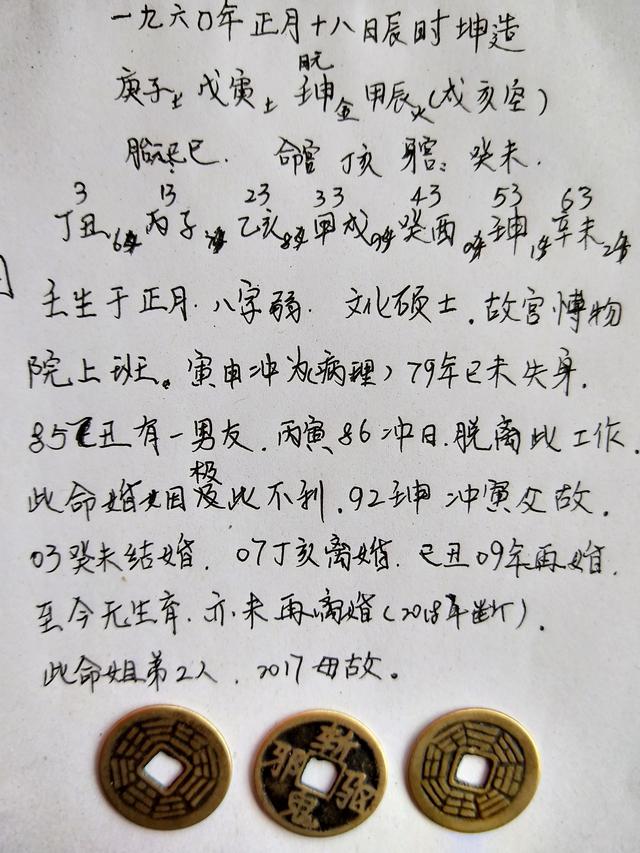 一九六0年正月十八日辰时坤造
庚子土 戊寅土 壬申金 甲辰火(戌亥空)
胎元己巳. 命宫丁亥 身宫: 癸未.
3 13 23 33 43 53 63
丁丑 丙子 乙亥 甲戌 癸酉 壬申 辛未
壬生于正月. 八字弱. 文化硕士. 故宫博物
院上班。寅申冲为(病理) 79年己未失身.
85乙丑有一男友. 丙寅86冲日. 脱离此工作.
此命婚姻极此不利. 92壬申冲寅父故.
03癸未结婚. 07丁亥离婚. 己丑09年再婚.
至今无生育. 亦未再离婚(2018年断).
此命姐弟2人. 2017母故。
斩
驱
鬼